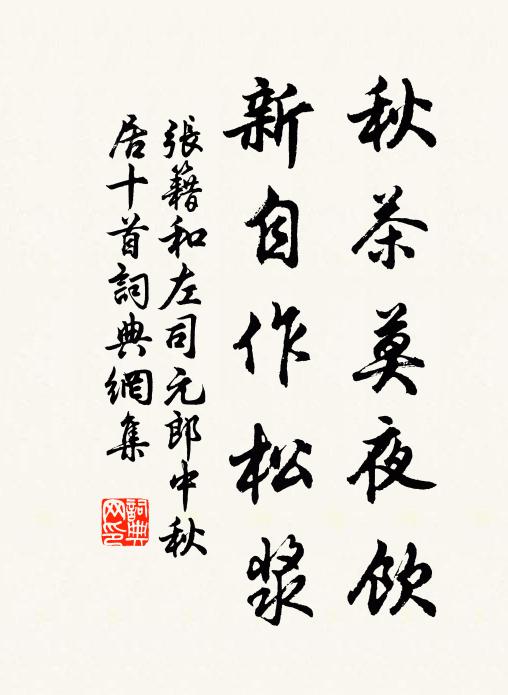 秋茶莫夜飲
新自作松漿
張籍和左司元郎中秋
居十首詞典網集
詞典
网印